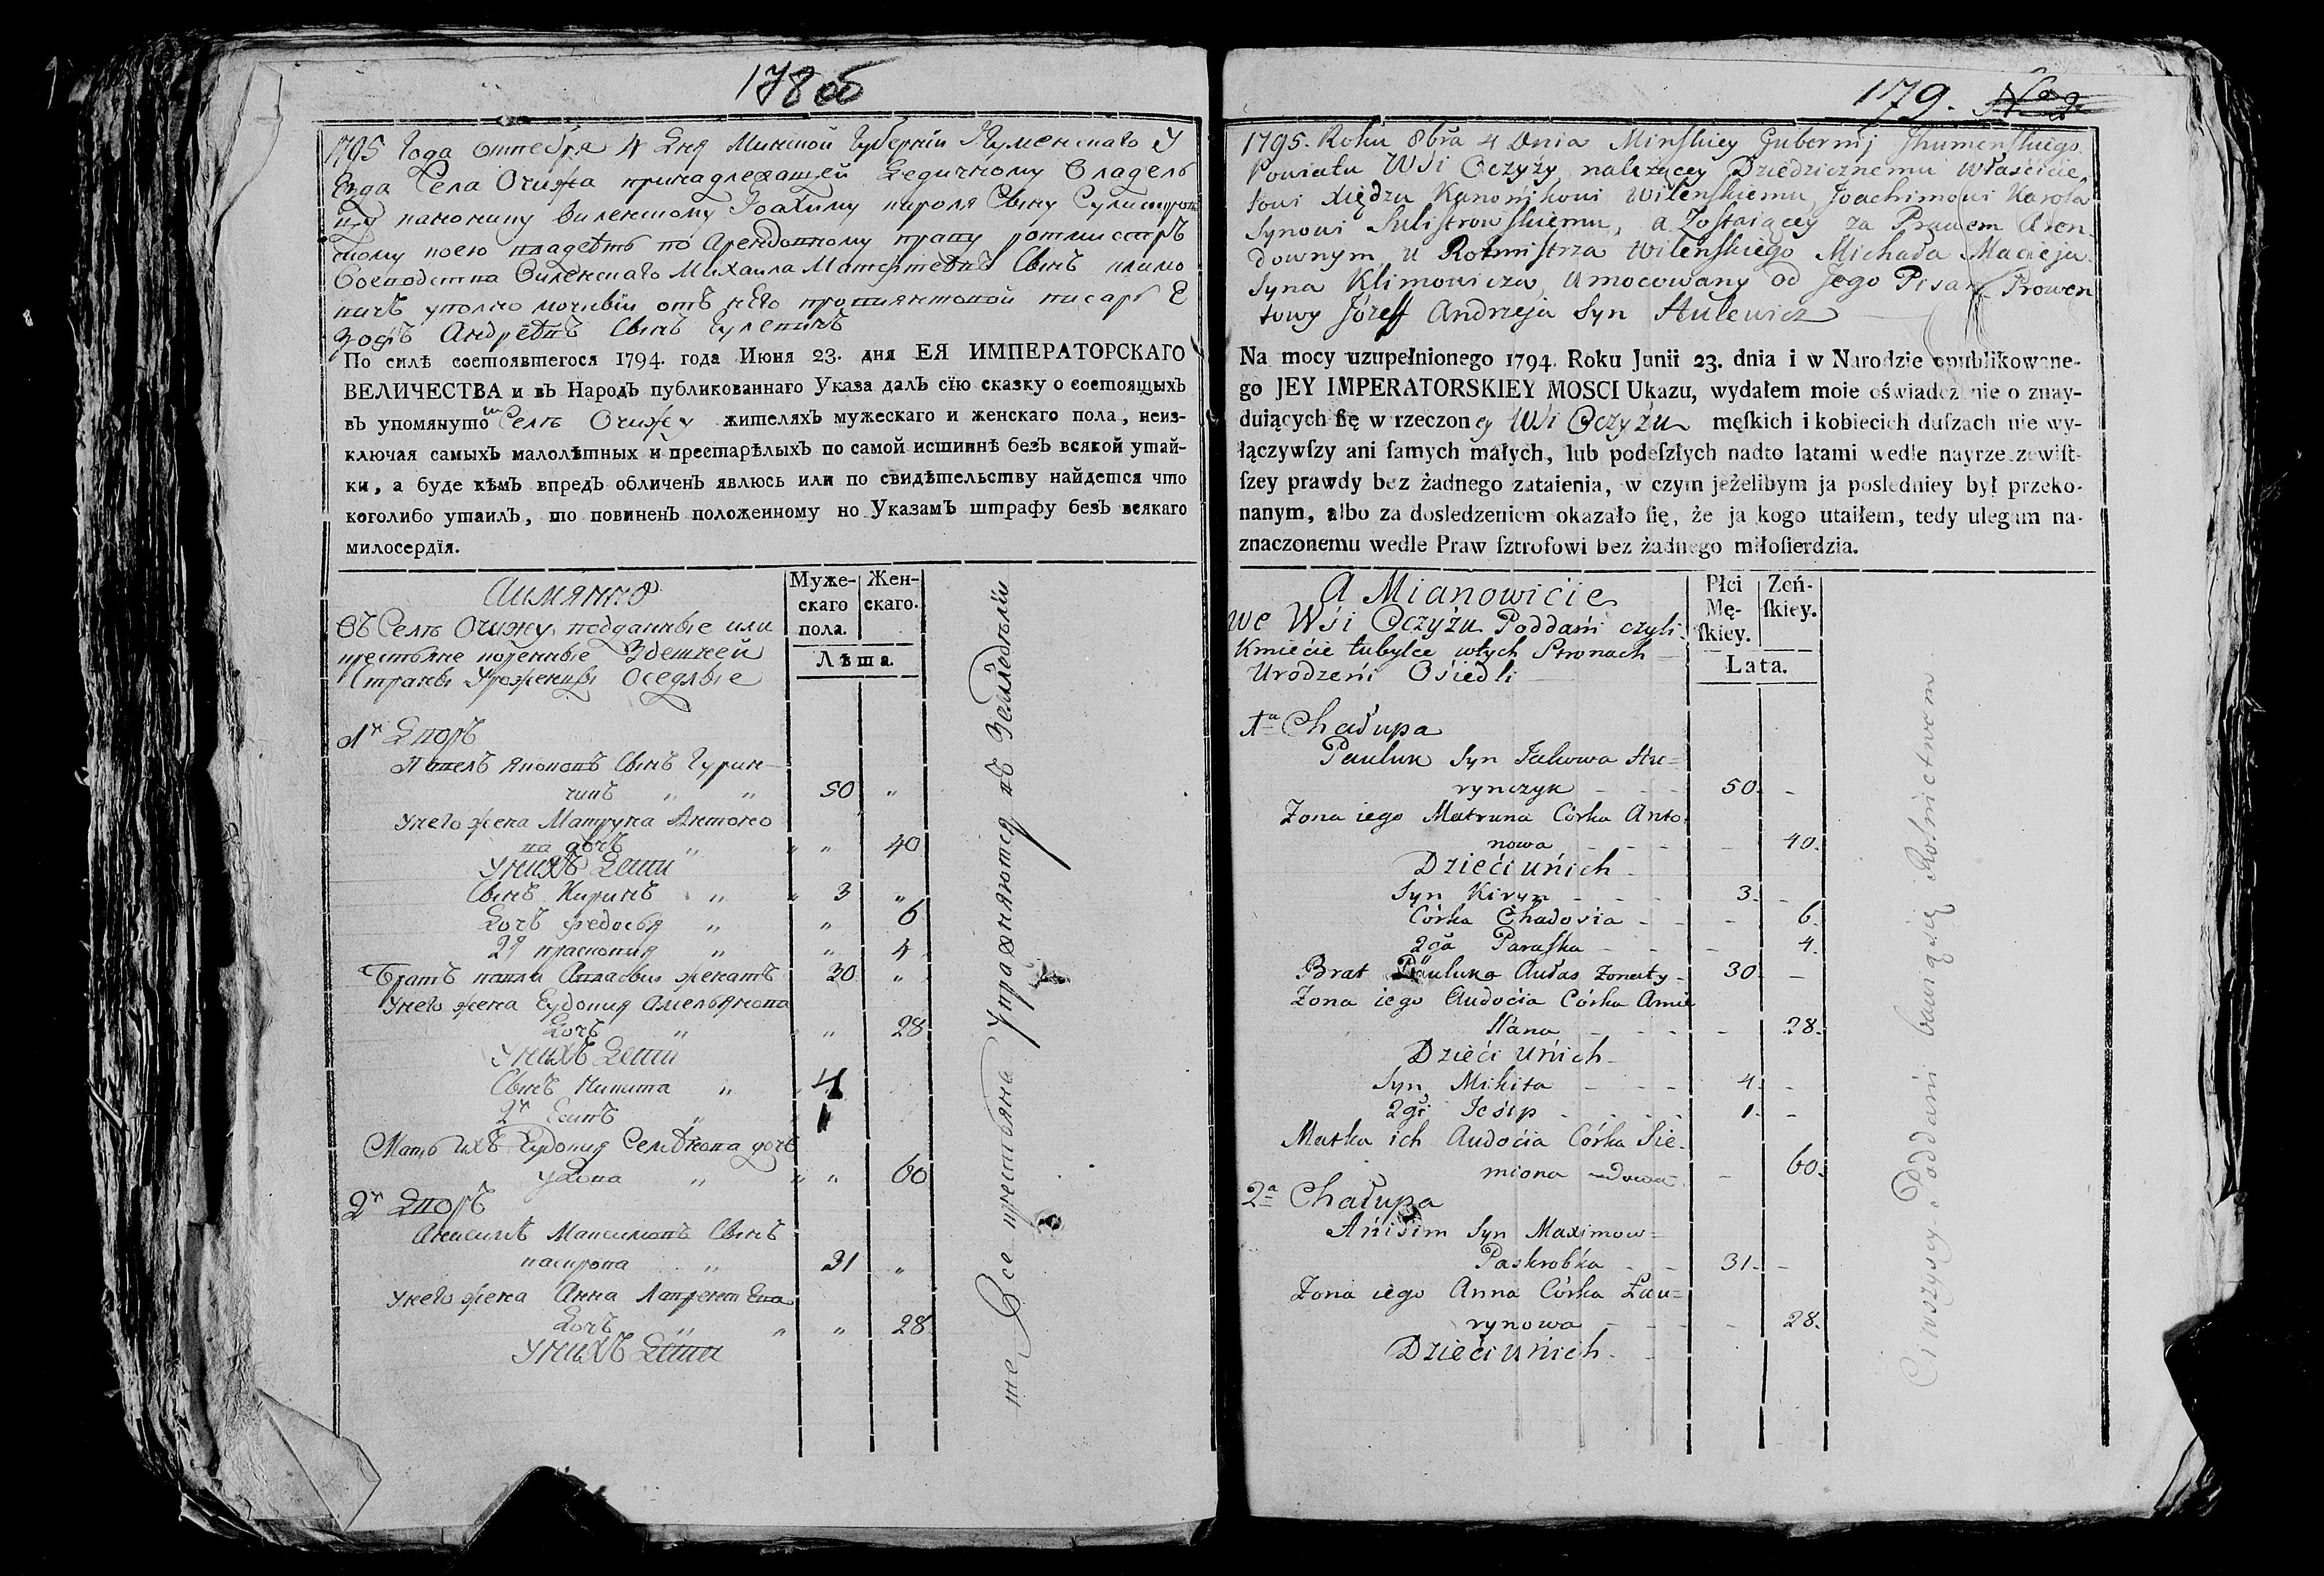 178 об
1795 Года октебря 4 Дня Минской Губернiи Игуменскаго У
Езда Села Очижа принадлежащей Ведичному Владель
цу канонику Виленскому Iоахиму кароля Сыну Сулистров
скому коею владетъ по Арендовному праву ротмистръ
Воеводства Виленскаго Михаила Матертевъ Сынъ климо
вичъ уполно мочивiи отъ него провиянтовой писарь Е
зофъ Андрѣевъ Сынъ Гулевичъ
По силѣ состоявшегося 1794. года Июня 23. дня ЕЯ ИМПЕРАТОРСКАГО
ВЕЛИЧЕСТВА и въ Народъ публикованнаго Указа далъ сїю сказку о состоящыхъ
въ упомянуто Селѣ Очижу жителяхъ мужескаго и женскаго пола, неиз-
ключая самыхъ малолѣтныхъ и престарѣлыхъ по самой истиннѣ безъ всякой утай-
ки, а буде кѣмъ впредъ обличенъ явлюсь или по свидѣтельству найдется что
коголибо утаилъ, то повиненъ положенному по Указамъ штрафу безъ всякаго
милосердїя.
Аимянно
Муже-скаго пола. Жен-скаго.
Лѣта.
Въ Селѣ Очижу подданные или
крестьяне коренные Здешней
Страны Урожен‍цы Оседлые
1й Дворъ
Павелъ Якововъ Сынъ Гурин
чикъ " " 50 "
Унего жена Матруна Антоно
ва дочь " " " 40
Унихъ Дети
Сынъ Киринъ " " 3 "
Дочь федосья " " 6
2я прасковия " " 4
Братъ павла Авласъ женатъ 30 "
Унего жена Еудокия Амельянова
Дочь " " " 28
Унихъ Дети
Сынъ Никита " " 4
2й Есипъ " 1
Мать ихъ Еудокия Семѣнова дочь
удова " " " 60
2й Дворъ
Анисимъ Максимовъ Сынъ
паскропа " 31 "
Унего жена Анна Лаврентева
Дочь " " " 28
Унихъ Дети
те Все крестьяна Упражняются въ Земледелiи
179. No 2
1795. Roku 8bra 4 Dnia Mińskiey Gubernij Jhumenskiego
Powiatu Wśi Oczyży należącey Dziedzicznemu Właściciе,
lowi Xiędzu Kanonikowi Wilenskiemu, Joachimowi Karola
Synowi Sulistrowskiemu, a Zostaiącey za Prawem Aren
downym u Rotmistrza Wileńskiego Michała Macieja
Syna Klimowicza, Umocowany od Jego Pisarz Prowen
towy Józeff Andrzeja Syn Hulewicz
Na mocy uzupełnionego 1794. Roku Junii 23. dnia i w Narodzie opublikowane-
go JEY IMPERATORSKIEY MOSCI Ukazu, wydałem moie oświadczenie o znay-
duiących ſię w rzeczoney Wśi Oczyżu męſkich i kobiecich duſzach nie wy-
łączywſzy ani ſamych małych, lub podeſzłych nadto latami wedle nayrzeczewiſt-
ſzey prawdy bez żadnego zataienia, w czym jeżelibym ja posledniey był przeko-
nanym, albo za dosledzeniem okazało ſię, że ja kogo utaiłem, tedy ulegam na-
znaczonemu wedle Praw ſztrofowi bez żadnego miłoſierdzia.
A Mianowicie
Płci Mę-ſkiey. Zeń-ſkiey.
Lata.
We Wśi Oczyżu Poddani czyli
Kmiećie tubylce wtych Stronach
Urodzeni Ośiedli
1a Chałupa
Pauluk Syn Jakowa Hu=
rynczyk - - - 50. -
Zona iego Matruna Córka Anto
nowa - - - - 40.
Dzieći unich
Syn Kiryn - - - 3. -
Córka Chadosia - - - 6.
2ga Paraſka - - - 4.
Brat Pauluka Aułas żonaty - 30 -
Zona iego Audoćia Córka Amie
lłana - - - - 28.
Dzieći unich
Syn Mikita - - - 4. -
2gi Jesip - - - - 1. -
Matka ich Audoćia Córka Sie.
miona - Dowa - 60.
2a Chałupa
Anisim Syn Maximow=
Paskrobka - - 31. -
Zona iego Anna Córka Łau=
rynowa - - - - 28.
Dzieći unich -
Ciwszyscy Poddani bawią się Rolnictwem